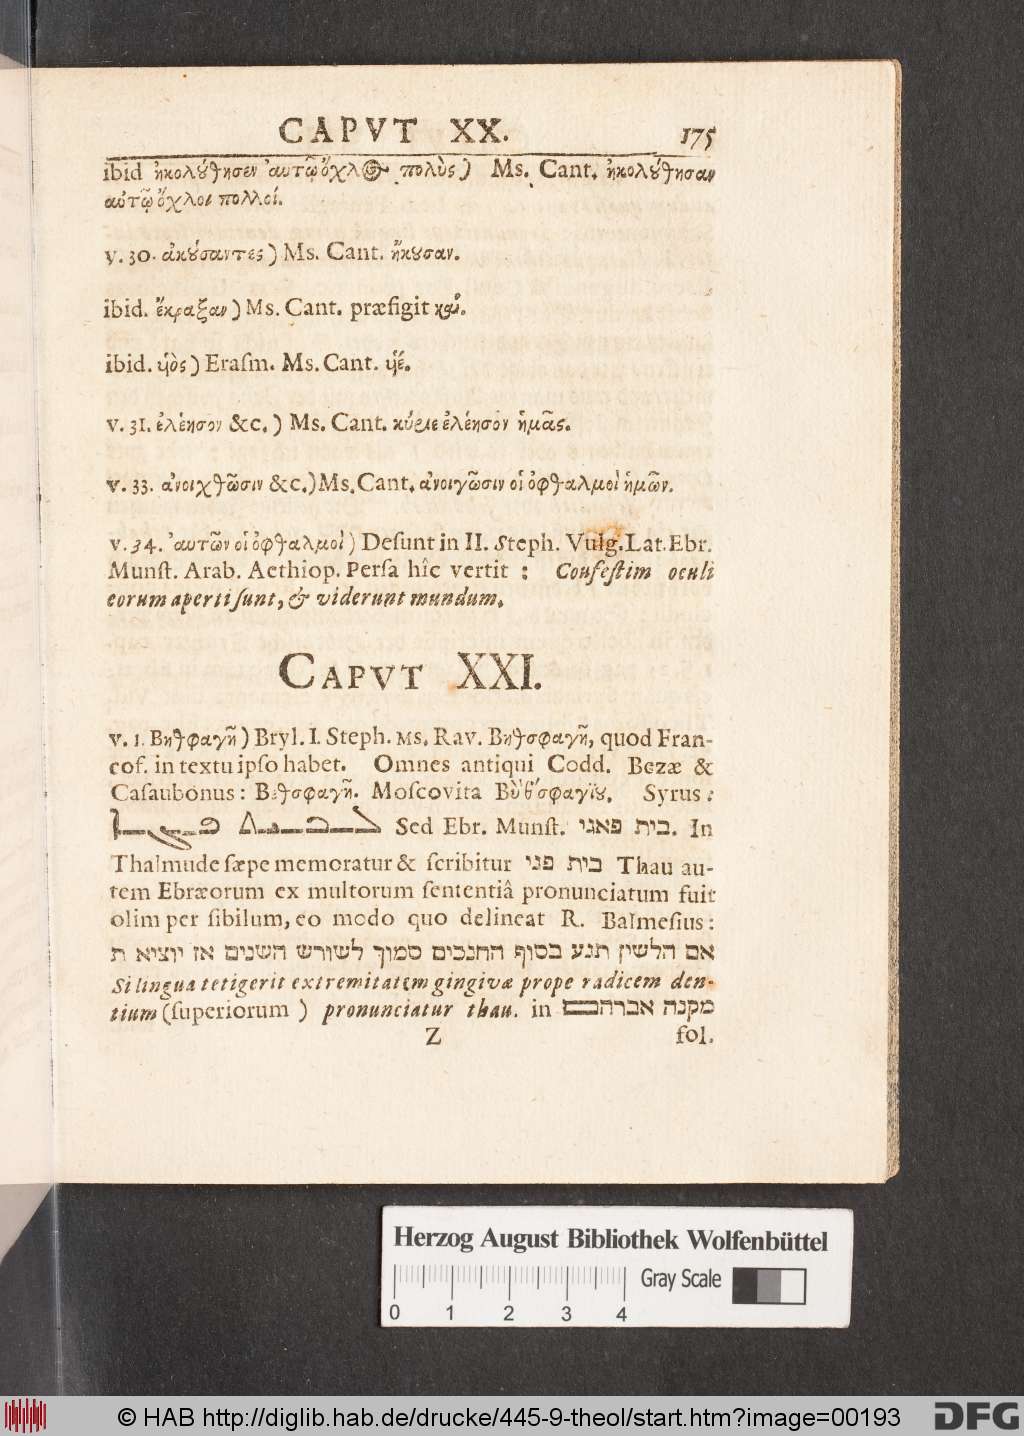 CAPVT XX. 175
ibid ἠκολύθησεν ἀυτῷ ὄχλος πολὺς) Ms. Cant. ἠκολύθησαν
αὐτῷ ὄχλοι πολλοί.
v. 30. ἀκούσαντες) Ms. Cant. ἤκουσαν.
ibid. ἔκραξαν) Ms. Cant. præfigit καὶ.
ibid. υἱὸς) Eraſm. Ms. Cant. υἱέ.
v. 31. ἐλέησον &c.) Ms. Cant. κύριε ἐλέησον ἡμᾶς.
v. 33. ἀνοιχθῶσιν &c.) Ms. Cant. ἀνοιγῶσιν οἱ ὀφθαλμοὶ ἡμῶν.
v. 34. ἀυτῶν οἱ ὀφθαλμοὶ) Deſunt in II. Steph. Vulg. Lat. Ebr.
Munſt. Arab. Aethiop. Perſa hîc vertit: Confeſtim oculi
eorum aperti ſunt, & viderunt mundum.
CAPVT XXI.
v. 1. Βηθφαγῆ) Bryl. I. Steph. Ms. Rav. Βηθσφαγῆ, quod Fran-
cof. in textu ipſo habet. Omnes antiqui Codd. Bezæ &
Caſaubonus: Βεθσφαγῆ. Moſcovita Syrus:
Sed Ebr. Munſt. בית פאגי. In
Thalmude ſæpe memoratur & ſcribitur בית פגי Thau au-
tem Ebræorum ex multorum ſententiâ pronunciatum fuit
olim per ſibilum, eo modo quo delineat R. Balmeſius:
אם הלשין תגע בסוף החנכים סמוך לשורש השנים אז יוציא ת
Si lingua tetigerit extremitatem gingivæ prope radicem den-
tium (ſuperiorum) pronunciatur thau. in מקנה אברהם
Z fol.
Herzog August Bibliothek Wolfenbüttel
Gray Scale
0 1 2 3 4
© HAB http://diglib.hab.de/drucke/445-9-theol/start.htm?image=00193 DFG